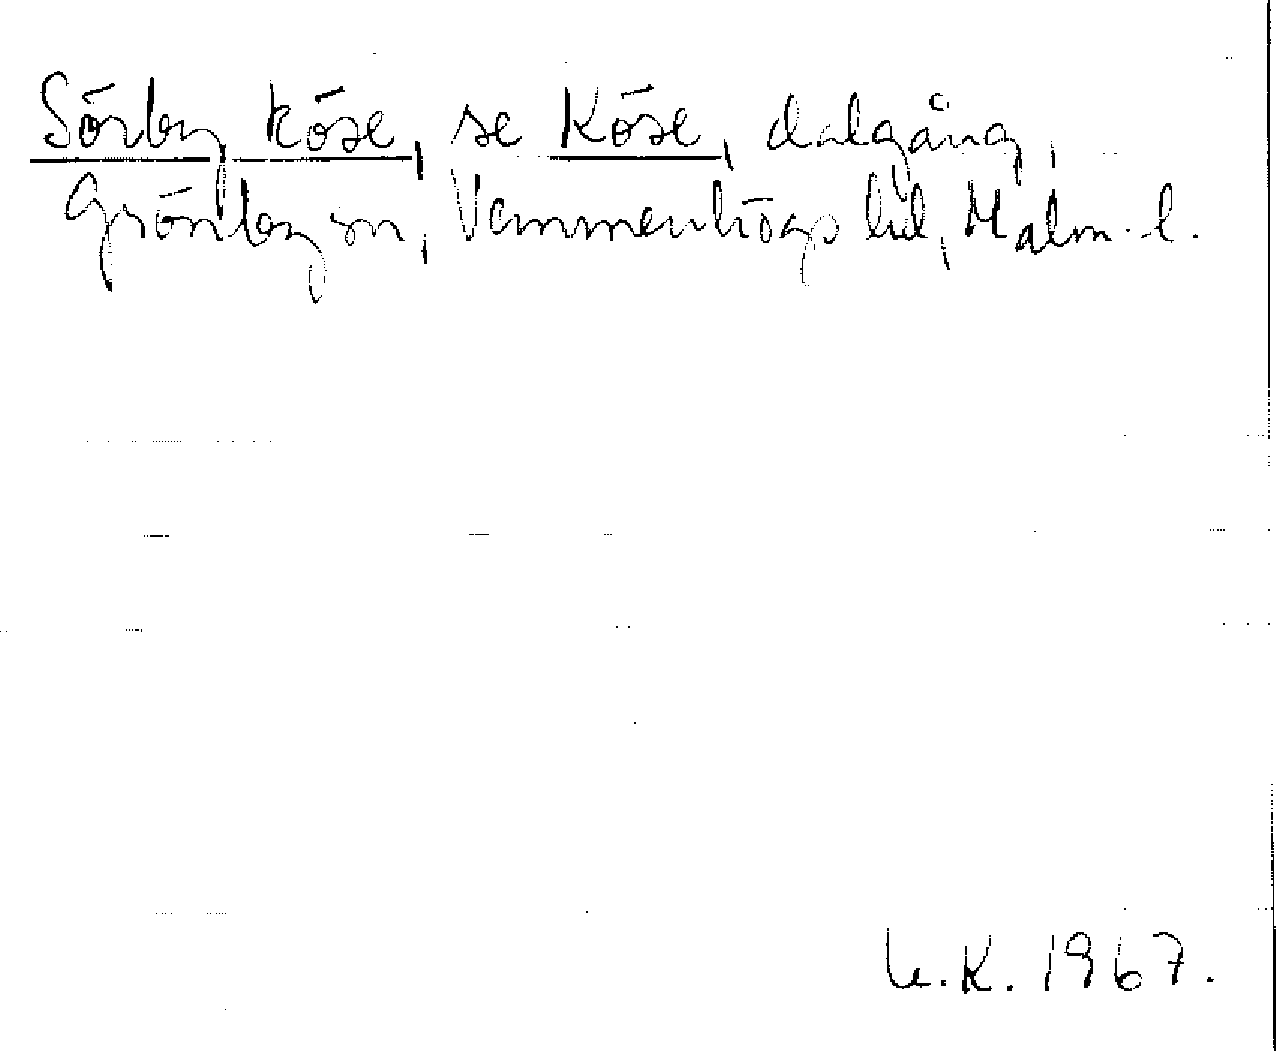 Sörby köse, se Köse, dalgång,
Grönby sn, Vemmenhögs hd, Malm. l.
U.K. 1967.